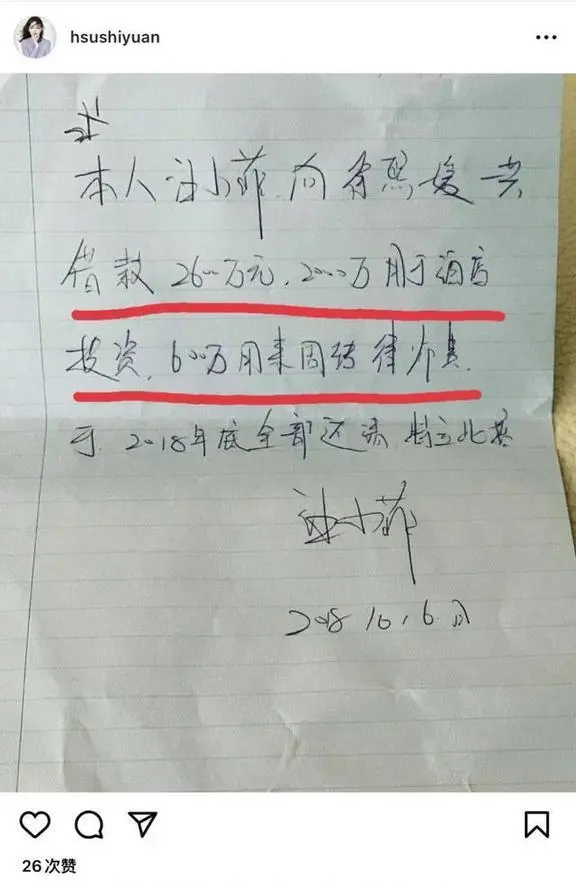 hsushiyuan
本人汪小菲，向徐熙媛共
借款 2600万元，2000万用于酒店
投资，600万用来周转律师费
于，2018年底全部还清，特立此据
汪小菲
2018 10，6.日
26次赞